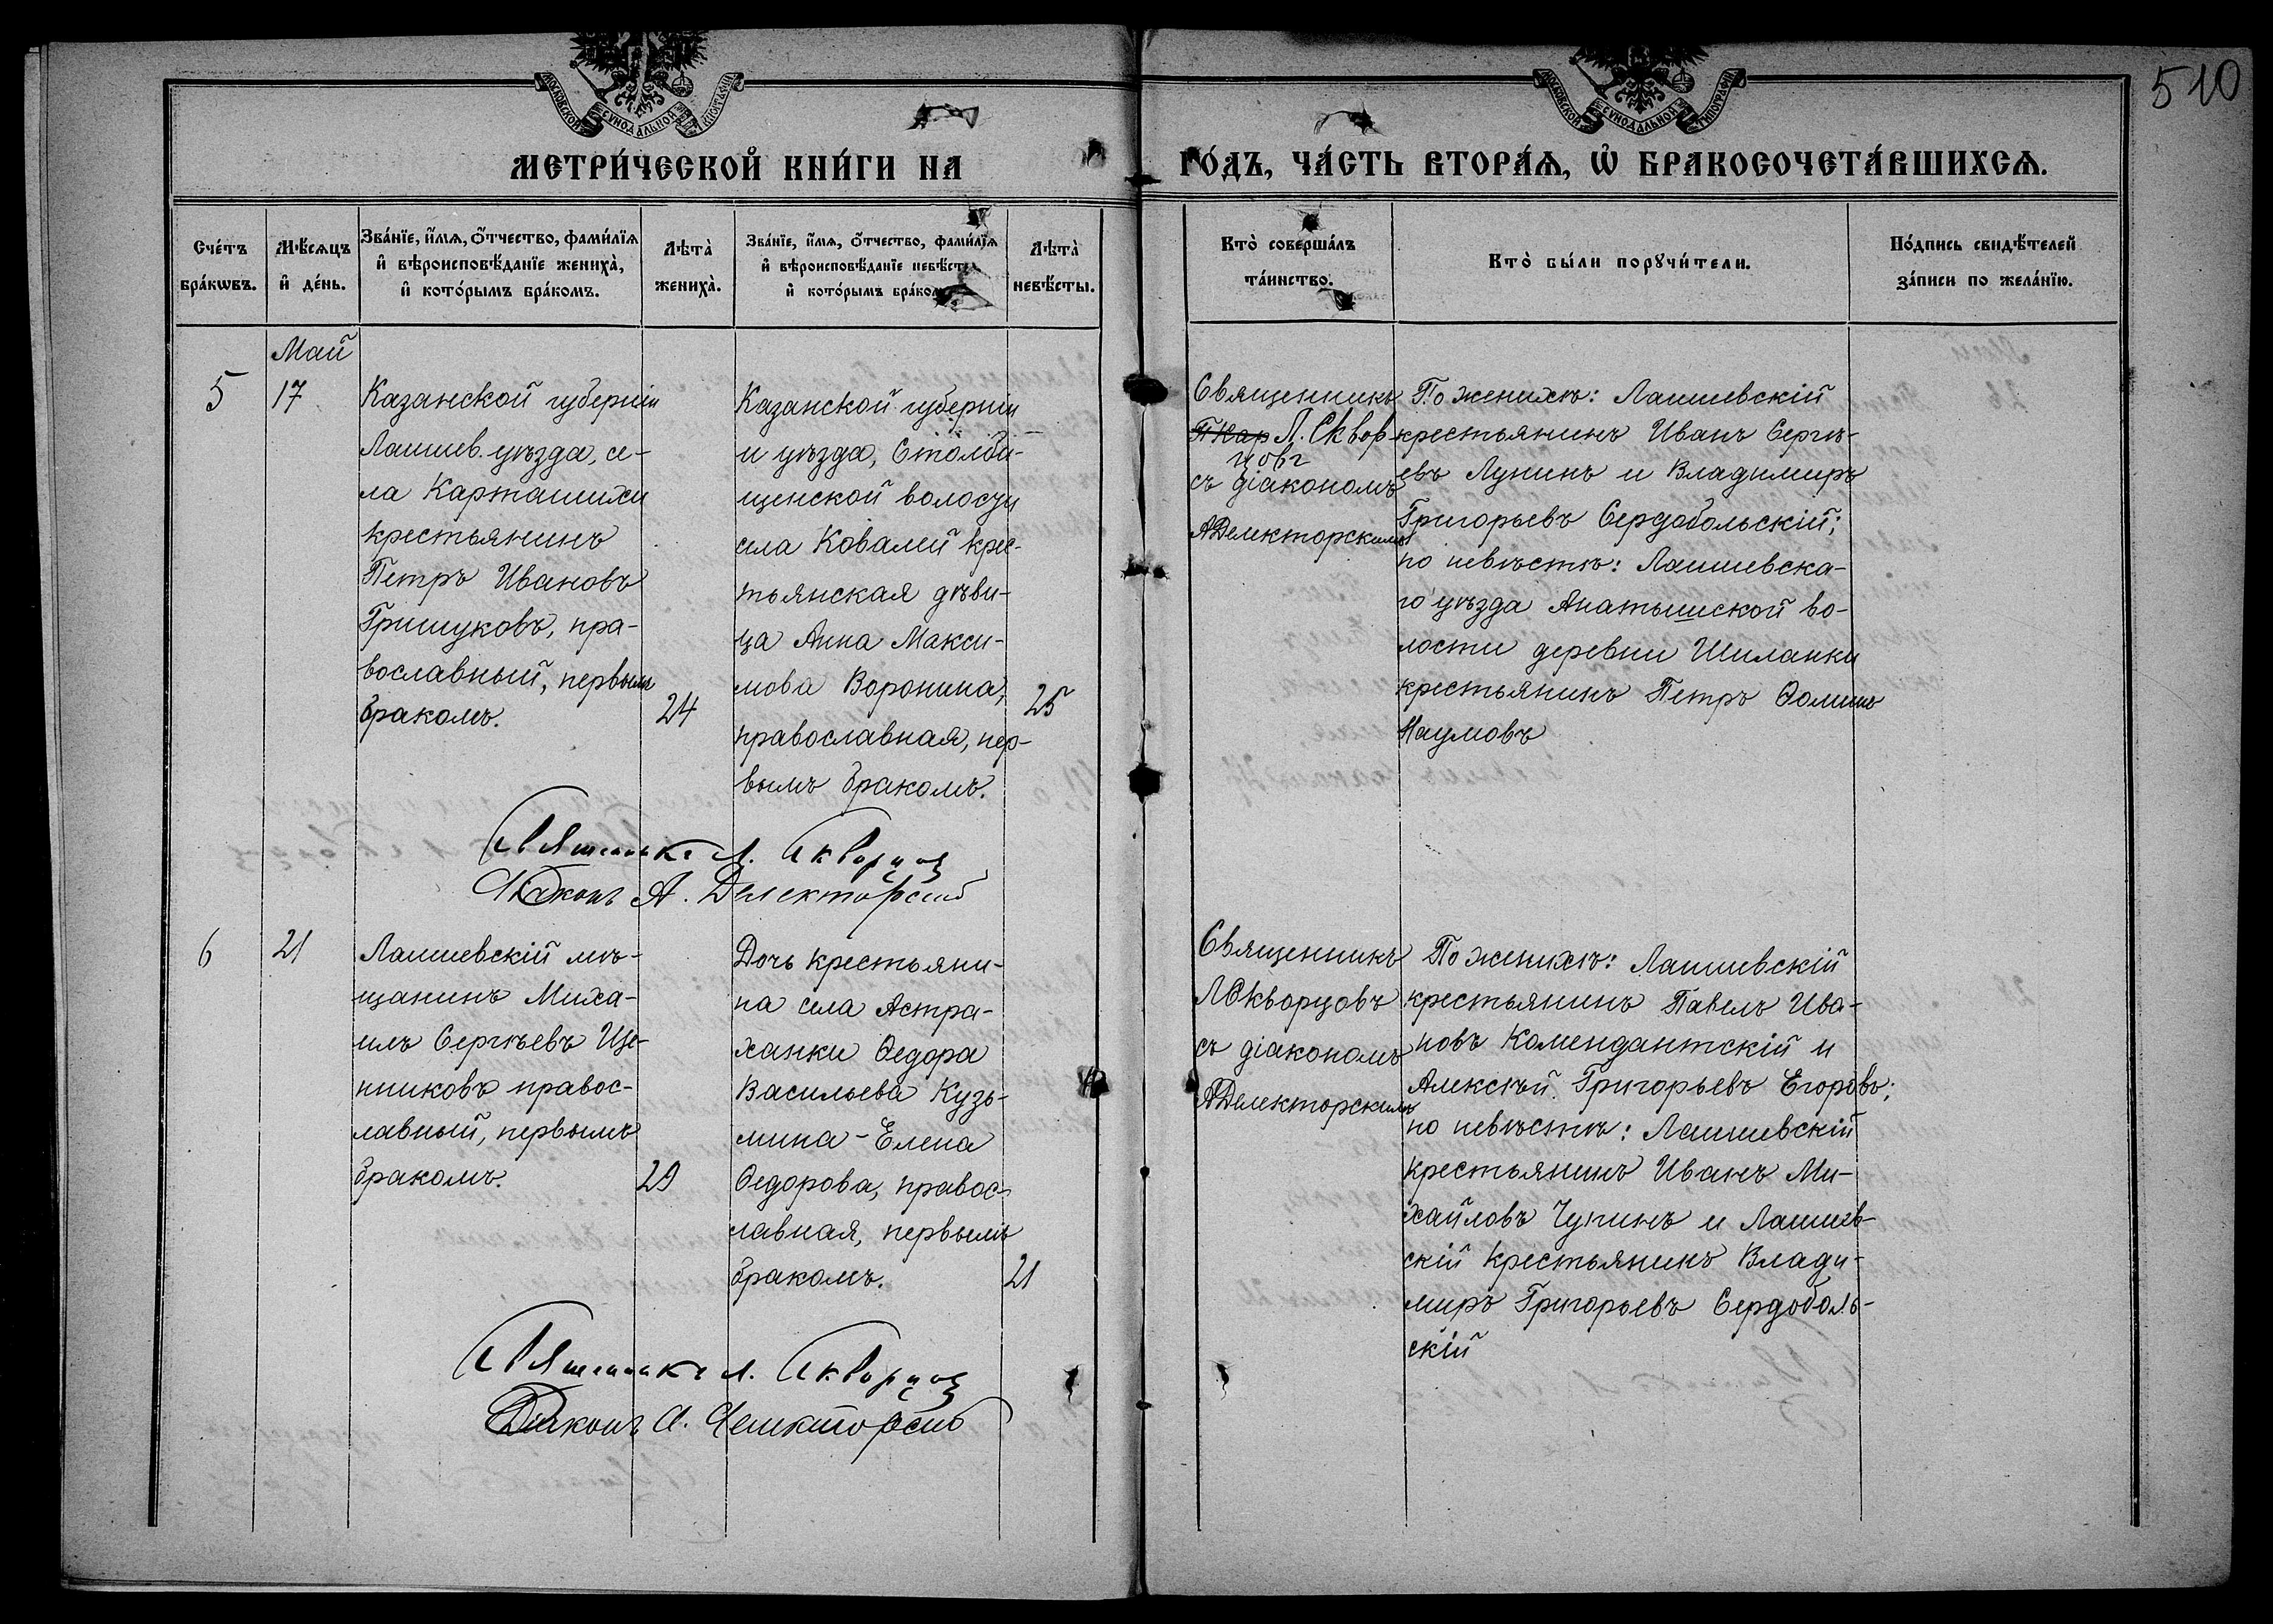 510
МОСКОВСКОЙ СУНОДАЛЬНОЙ ТИПОГРАФІИ
МОСКОВСКОЙ СУНОДАЛЬНОЙ ТИПОГРАФІИ
МЕТРИ́ЧЕСКОЙ КНИ́ГИ НА
ГО́ДЪ, ЧА́СТЬ ВТОРА́Ѧ, Ѡ БРАКОСОЧЕТА́ВШИХСѦ.
Сче́тъ
бра́кѡвъ.
Мѣ́сѧцъ
и҆ де́нь.
Зва́нїе, и҆́мѧ, ѻ҆́тчество, фами́лїѧ
и҆ вѣроисповѣ́данїе жениха̀,
и҆ кото́рымъ бра́комъ.
Лѣта̀
жениха̀.
Зва́нїе, и҆́мѧ, ѻ҆́тчество, фами́лїѧ
и҆ вѣроисповѣ́данїе невѣ́сты
и҆ кото́рымъ бра́комъ.
Лѣта̀
невѣ́сты.
Кто̀ соверша́лъ
та́инство.
Кто̀ бы́ли порꙋчи́тели.
По́дпись свидѣ́телей
за́писи по жела́нїю.
Май
5
17
Казанской губерніи
Лаишев. уѣзда, се-
ла Карташихи
крестьянинъ
Петръ Ивановъ
Гришуковъ, пра-
вославный, первымъ
бракомъ.
24
Казанской губерніи
и уѣзда, Столби-
щенской волости
села Ковалей крес-
тьянская дѣви-
ца Анна Макси-
мова Воронина,
православная, пер-
вымъ бракомъ.
25
Священникъ
Л. Сквор-
цовъ
съ діакономъ
А Делекторскимъ
По женихѣ: Лаишевскій
крестьянинъ Иванъ Сергѣ-
евъ Лунинъ и Владимиръ
Григорьевъ Сердобольскій;
по невѣстѣ: Лаишевска-
го уѣзда Анатышской во-
лости деревни Шиланки
крестьянинъ Петръ Ѳоминъ
Наумовъ
Священникъ Л. Скворцовъ
Діаконъ А. Делекторскій
6
21
Лаишевскій мѣ-
щанинъ Миха-
илъ Сергѣевъ Ще-
нниковъ правос-
лавный, первымъ
бракомъ.
29
Дочь крестьяни-
на села Астра-
ханки Ѳедора
Васильева Кузь-
мина - Елена
Ѳедорова, правос-
лавная, первымъ
бракомъ.
21
Священникъ
Л Скворцовъ
съ діакономъ
А Делекторскимъ
По женихѣ: Лаишевскій
крестьянинъ Павелъ Ива-
новъ Комендантскій и
Алексѣй Григорьевъ Егоровъ;
по невѣстѣ: Лаишевскій
крестьянинъ Иванъ Ми-
хайловъ Чупинъ и Лаишев-
скій крестьянинъ Влади-
миръ Григорьевъ Сердоболь-
скій
Священникъ Л. Скворцовъ
Діаконъ А. Делекторскій